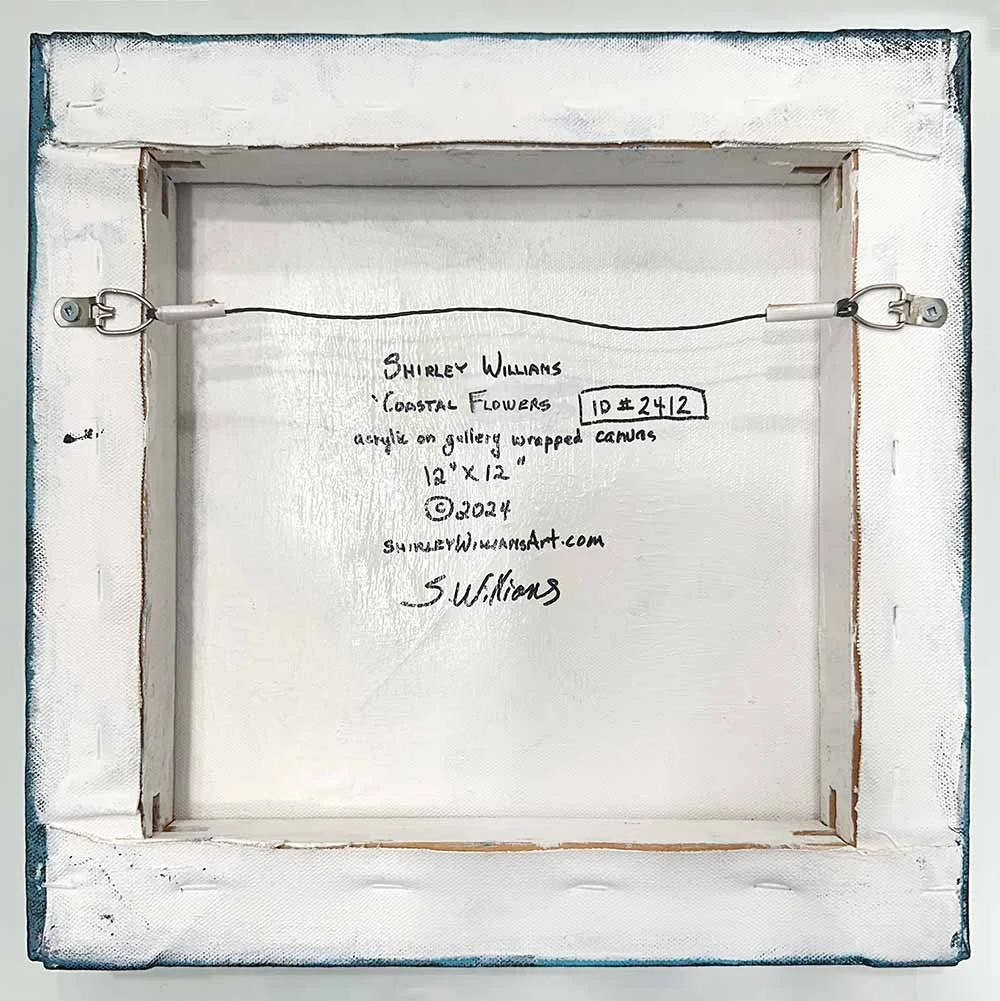 SHIRLEY WILLIAMS
'COASTAL FLOWERS ID # 2412
acrylic on gallery wrapped canvas
12" X 12"
©2024
SHIRLEYWILLIAMSArt.com
S. Williams